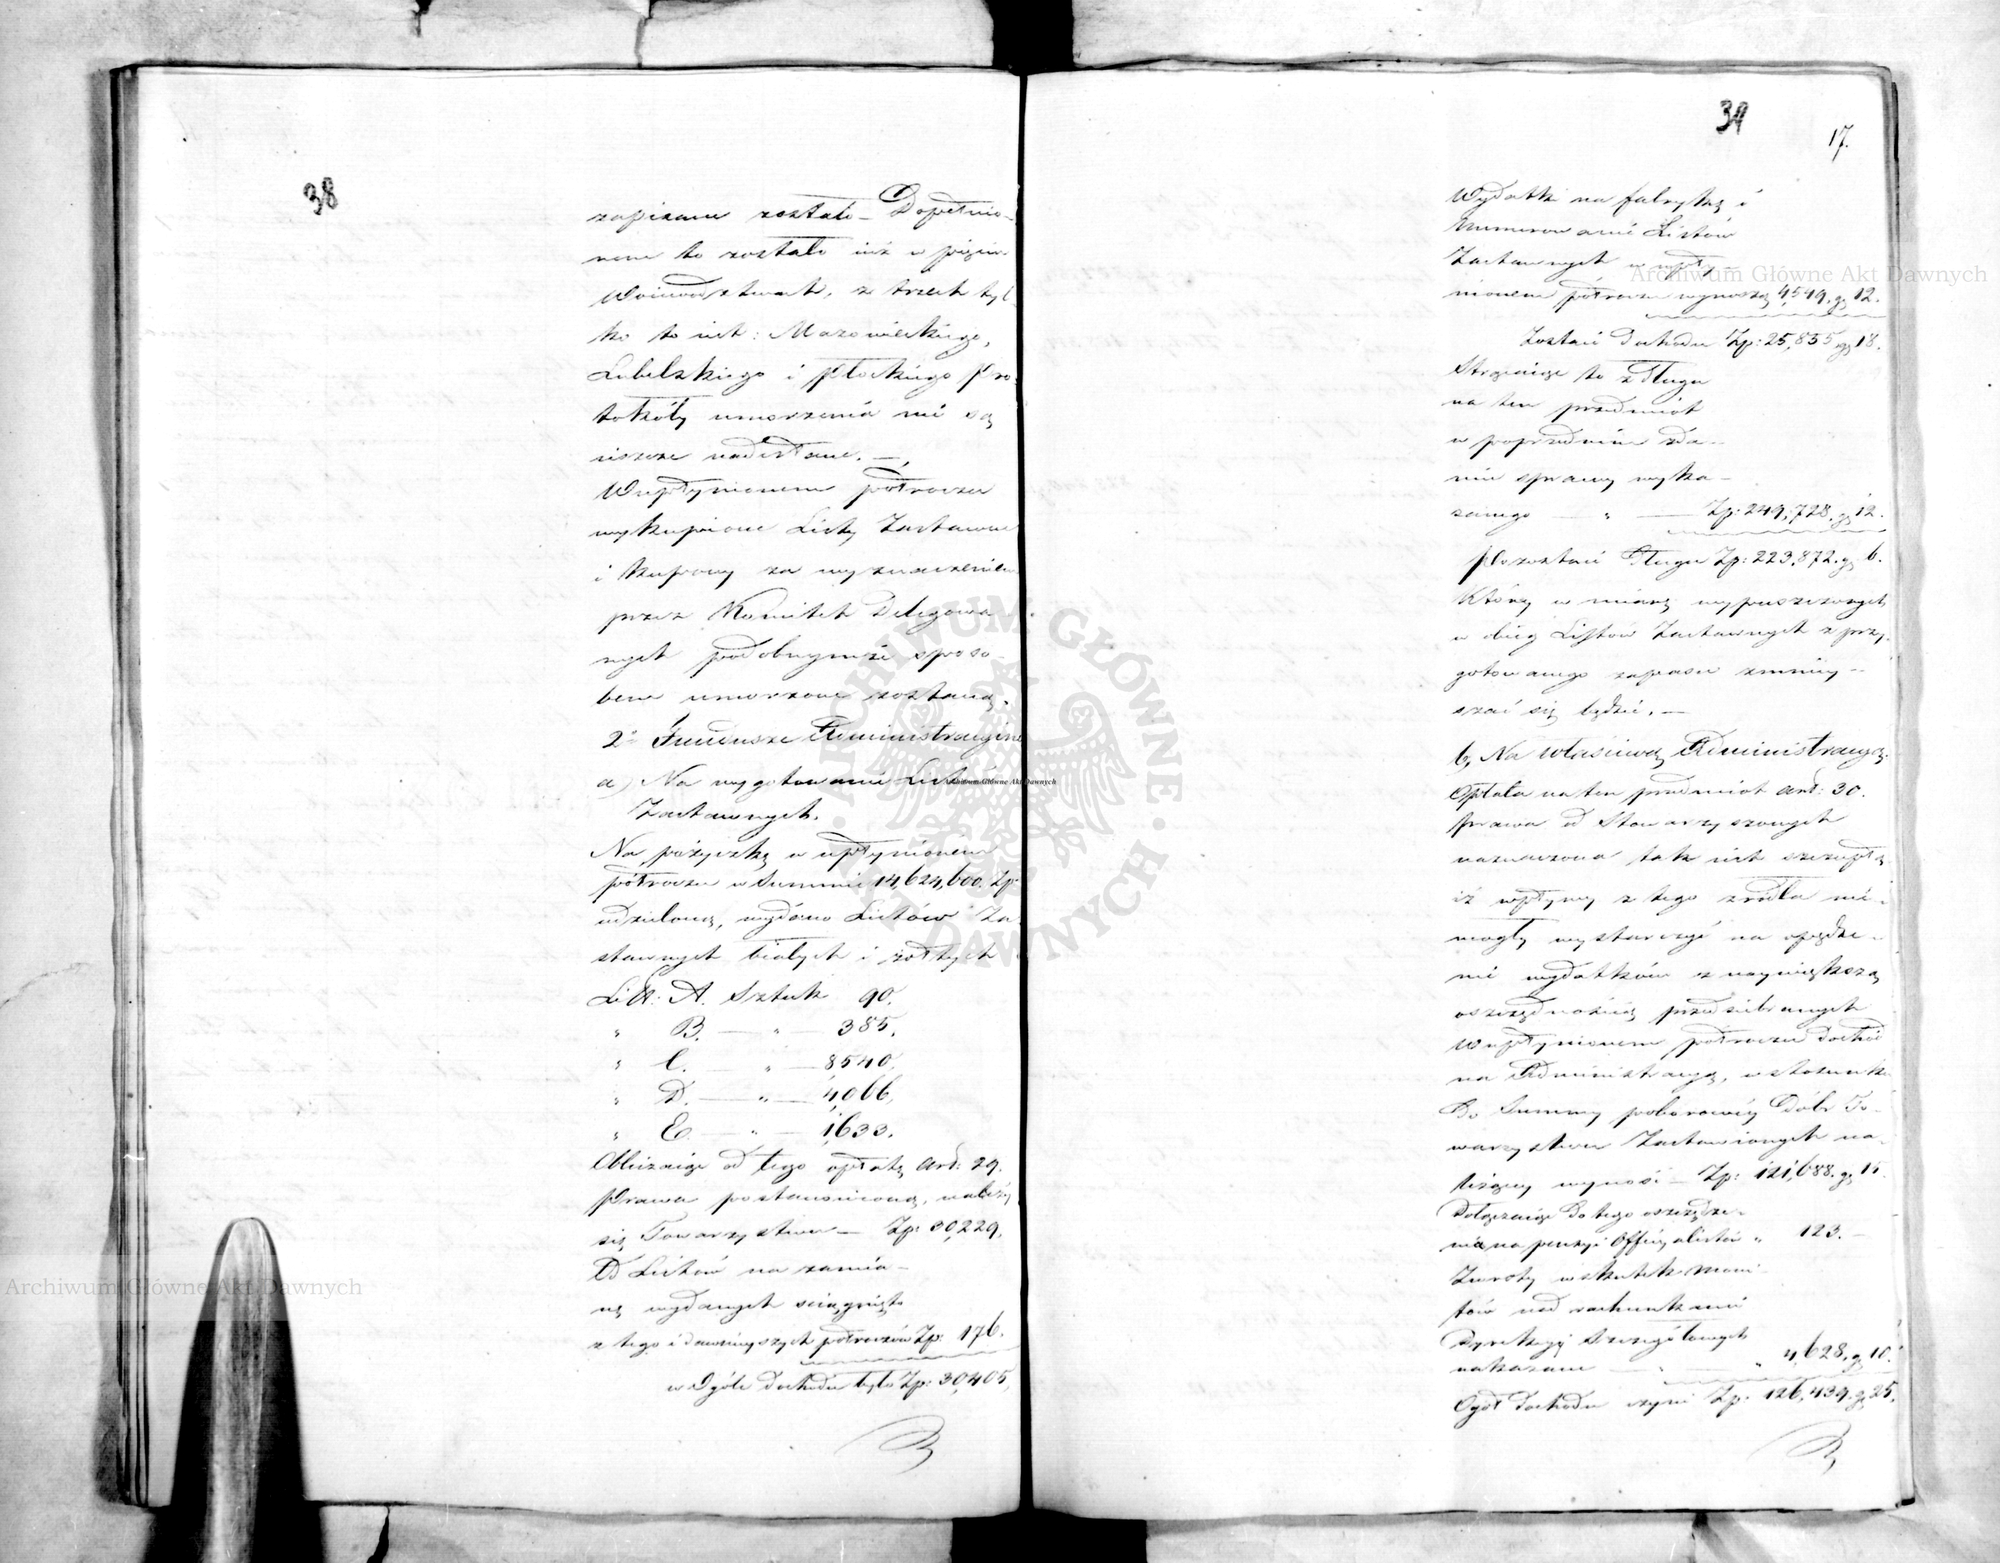 38
zapisane zostało – Dopełnio-
nem to zostało iuż w pięciu
Woiewództwach, z trzech tyl
ko to iest: Mazowieckiego,
Lubelskiego i Płockiego Pro-
tokóły umorzenia nie są
ieszcze nadesłane. —
W upłynionem półroczu
wykupione Listy Zastawne
i kupony za wyznaczeniem
przez Komitet Delegowa
nych podobnymże sposo-
bem umorzone zostaną.
2° Fundusze Administracyine
a) Na wygotowanie Listów
Zastawnych.
Na pożyczkę w upłynionem
półroczu w Summie 14,624,600. Zp:
udzieloną, wydano Listów Za
stawnych białych i żółtych
Litt: A. Sztuk 90.
„ B. — „ 385.
„ C. — „ — 8540.
„ D. — „ — 4,066.
„ E. — „ — 1,633.
Obliczaiąc od tego opłatę art: 29.
Prawa postanowioną, należy
się Towarzystwu — Zp: 30,229.
Od Listów na zamia-
nę wydanych ściągnięto
z tego i dawnieyszych półroczów Zp: 176.
w Ogóle dochodu było Zp: 30,405.
39
17.
Wydatki na fabrykę i
Numerowanie Listów
Zastawnych w upły-
nionem półroczu wynoszą 4,549. g 12.
Zostaie dochodu Zp: 25,855 g 18.
Strąciaiąc to z długu
na ten przedmiot
w poprzednim zda-
niu sprawy wyka-
zanego — „ — Zp: 249,728. g 12.
Pozostaie długu Zp: 223,872. g 6.
Który w miarę wypuszczonych
w obieg Listów Zastawnych z przy-
gotowanego zapasu zmniey-
szać się będzie. —
b, Na właściwą Administracyą.
Opłata na ten przedmiot art: 30.
Prawa od Stowarzyszonych
naznaczona tak iest szczupłą
iż wpływy z tego źródła nie-
mogły wystarczyć na opędze-
nie wydatków z naywiększą
oszczędnością przedsiębranych
W upłynionem półroczu dochód
na Administracyą, w stosunku
do Summy poborowéy Dóbr To-
warzystwu Zastawionych na-
leżący wynosi — Zp: 121,688. g 15.
Dołączaiąc do tego oszczędze-
nia na pensyi Officyalistów „ 123. —
Zwroty w skutek Moni-
tów nad rachunkami
Dyrekcyi Szczegółowych
nakazane — „ — „ 4,628. g 10.
Ogół dochodu czyni Zp: 126,439. g 25.
Archiwum Główne Akt Dawnych
Archiwum Główne Akt Dawnych
Archiwum Główne Akt Dawnych
ARCHIWUM GŁÓWNE AKT DAWNYCH